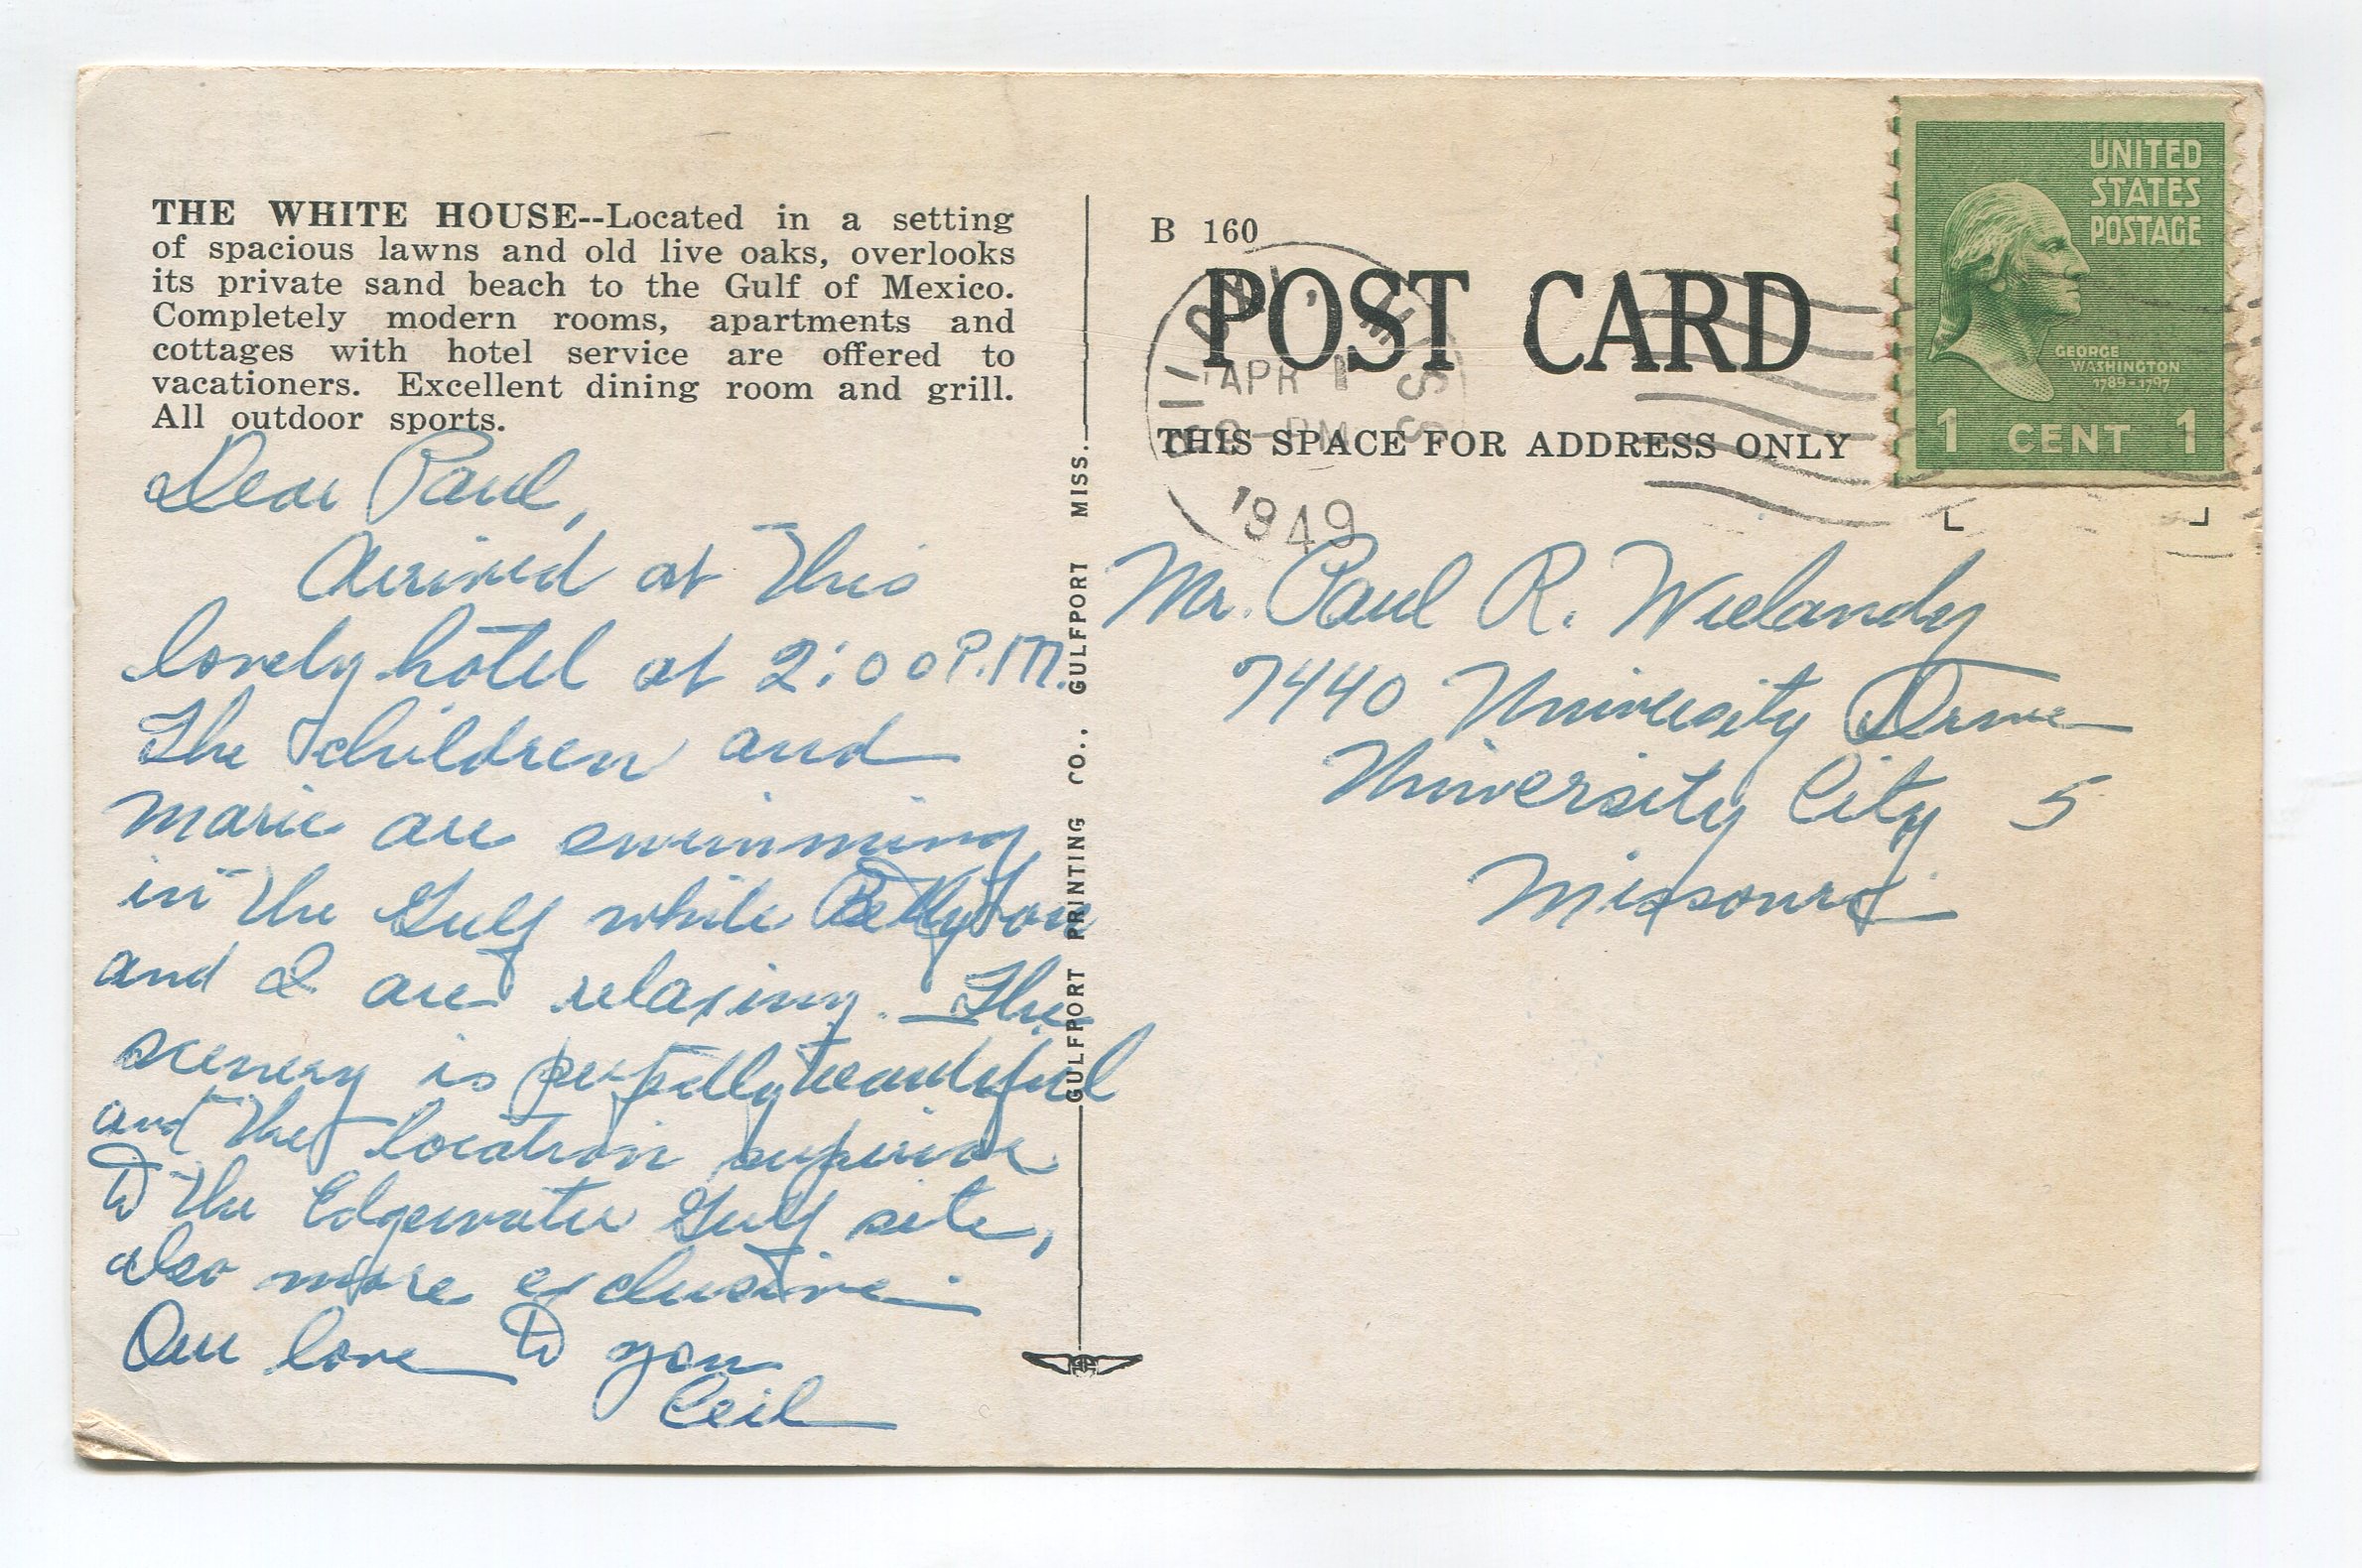 THE WHITE HOUSE--Located in a setting
of spacious lawns and old live oaks, overlooks
its private sand beach to the Gulf of Mexico.
Completely modern rooms, apartments and
cottages with hotel service are offered to
vacationers. Excellent dining room and grill.
All outdoor sports.
Dear Paul,
Arrived at this
lovely hotel at 2:00 P.M.
The children and
Marie are swimming
in the Gulf while Betty Lou
and I are relaxing. The
scenery is perfectly beautiful
and the location superior
to the Edgewater Gulf site,
also more exclusive.
Our love to you
Ceil
GULFPORT PRINTING CO., GULFPORT MISS.
B 160
POST CARD
THIS SPACE FOR ADDRESS ONLY
APR 1
PM
1949
UNITED
STATES
POSTAGE
GEORGE
WASHINGTON
1789-1797
1 CENT 1
Mr. Paul R. Wielandy
7440 University Drive
University City 5
Missouri